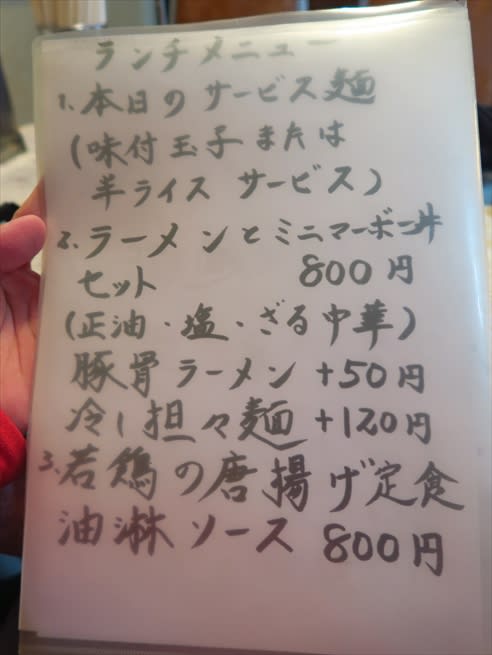 ランチメニュー
1. 本日のサービス麺
(味付玉子または
半ライス サービス)
2. ラーメンとミニマーボー丼
セット 800円
(正油・塩・ざる中華)
豚骨ラーメン +50円
冷し担々麺 +120円
3. 若鶏の唐揚げ定食
油淋ソース 800円